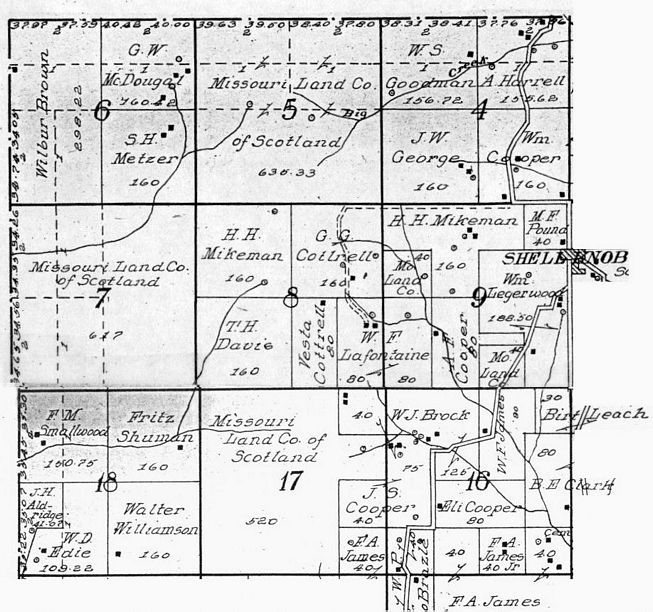 37.97 37.59 40.46 40.00 39.63 39.50 38.40 37.80 38.31 38.41 37.76
G.W.
McDougal
160.42
6
Wilbur Brown
298.22
S.H.
Metzer
160
Missouri Land Co.
5
of Scotland
635.33
Big
Creek
W.S.
Goodman
156.72
A Harrell
155.62
4
J.W.
George
160
Wm
Cooper
160
Missouri Land Co.
of Scotland
7
617
H.H.
Mikeman
160
G.G.
Cottrell
160
8
T.H.
Davis
160
Vesta
Cottrell
80
H.H. Mikeman
160
40
Mo
Land
Co.
M.F.
Pound
40
SHELL KNOB
9
Wm
Legerwood
188.50
W. F
Lafontaine
80
80
A.F.
Cooper
80
Mo
40
Land
F.M.
Smallwood
150.75
Fritz
Shuman
160
18
J.H.
Ald-
ridge
41.07
W.D
Edie
109.22
Walter
Williamson
160
Missouri
Land Co. of
Scotland
17
520
40
W.J. Brock
75
125
W.F. James
80
30
Birt Leach
80
B.E. Clark
16
J.S.
Cooper
40
Eli Cooper
80
F.A
James
40
W.P.
Brazile
40
40
F.A.
James
40 Jr
Cem
40
F.A. James